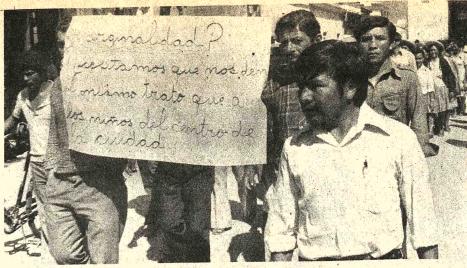 Marginalidad?
Necesitamos que nos den
el mismo trato que a
los niños del centro de
la cuidad